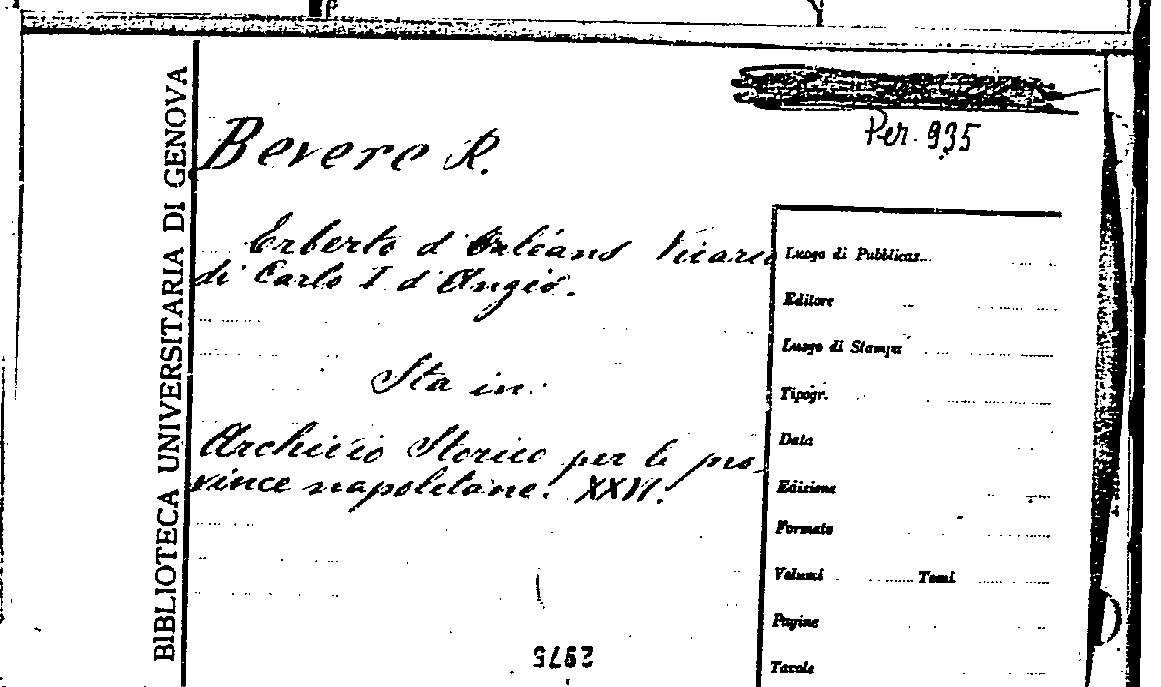 BIBLIOTECA UNIVERSITARIA DI GENOVA
Per. 935
Bevere R.
Erberto d'Orléans Vicario
di Carlo I d'Angiò.
Sta in:
Archivio Storico per le pro-
vince napoletane. XXVI.
Luogo di Pubblicaz.
Editore
Luogo di Stampa
Tipogr.
Data
Edizione
Formato
Volumi Tomi
Pagine
Tavole
2975